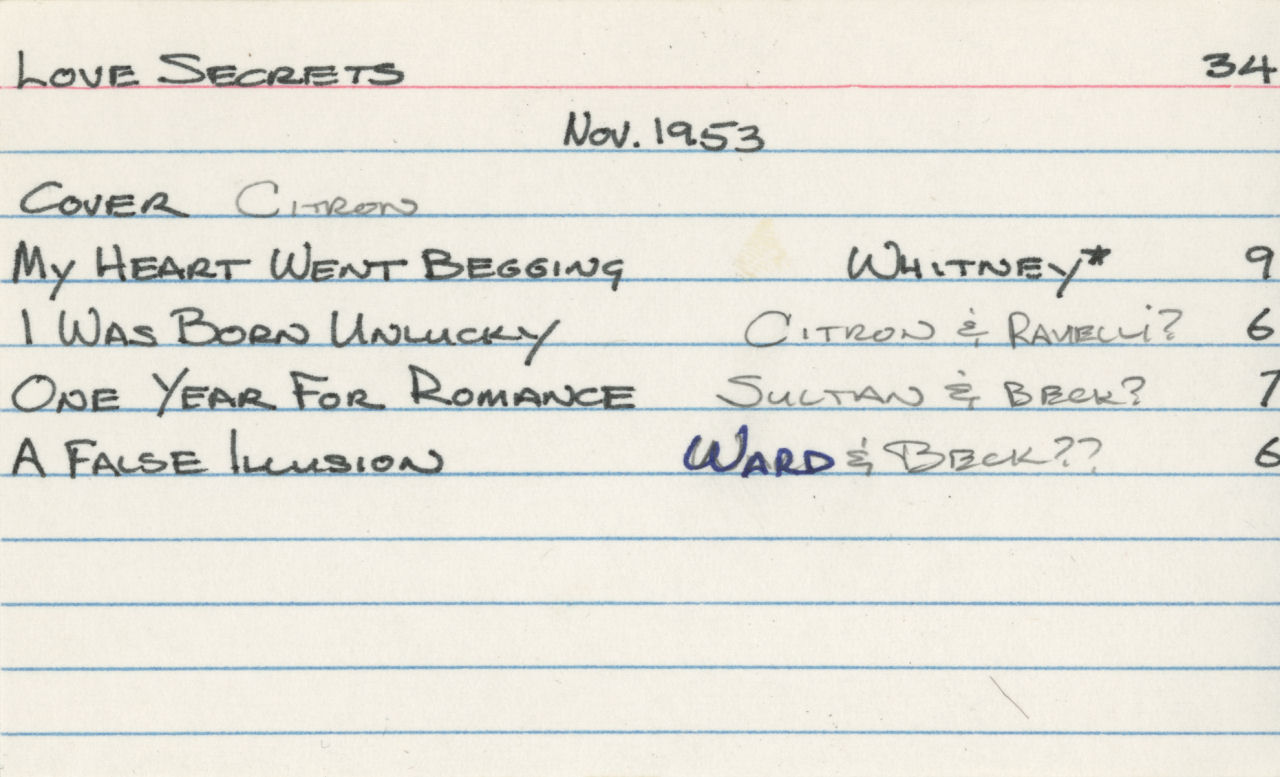 LOVE SECRETS 34
NOV. 1953
COVER CITRON
MY HEART WENT BEGGING WHITNEY* 9
I WAS BORN UNLUCKY CITRON & RAVIELLI? 6
ONE YEAR FOR ROMANCE SULTAN & BECK? 7
A FALSE ILLUSION WARD & BECK?? 6